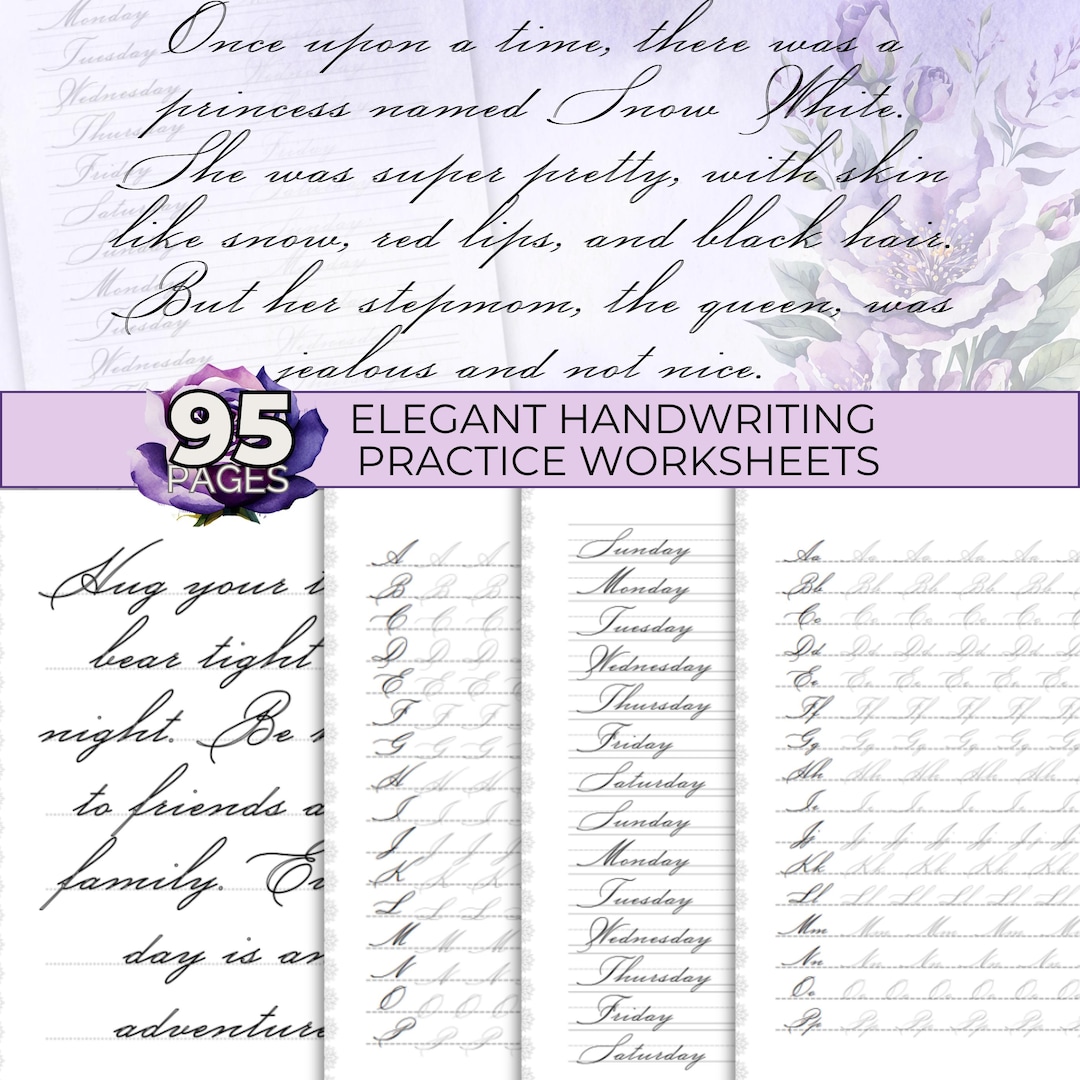 Once upon a time, there was a
princess named Snow White.
She was super pretty, with skin
like snow, red lips, and black hair.
But her stepmom, the queen, was
jealous and not nice.
Monday
Tuesday
Wednesday
Thursday
Friday
Saturday
Sunday
Monday
Tuesday
Wednesday
95
PAGES
ELEGANT HANDWRITING
PRACTICE WORKSHEETS
Hug your
bear tight
night. Be
to friends
family.
day is
adventure
A A A
B B B
C C C
D D D
E E E
F F F
G G G
H H H
I I I
J J J
K K K
L L L
M M M
N N N
O O O
P P P
Sunday
Monday
Tuesday
Wednesday
Thursday
Friday
Saturday
Sunday
Monday
Tuesday
Wednesday
Thursday
Friday
Saturday
Aa Aa Aa Aa Aa Aa
Bb Bb Bb Bb Bb
Cc Cc Cc Cc Cc
Dd Dd Dd Dd Dd
Ee Ee Ee Ee Ee
Ff Ff Ff Ff Ff Ff
Gg Gg Gg Gg Gg Gg
Hh Hh Hh Hh Hh
Jj Jj Jj Jj Jj Jj
Kk Kk Kk Kk Kk
Ll Ll Ll Ll Ll Ll
Mm Mm Mm Mm
Nn Nn Nn Nn Nn
Oo Oo Oo Oo Oo Oo
Pp Pp Pp Pp Pp Pp